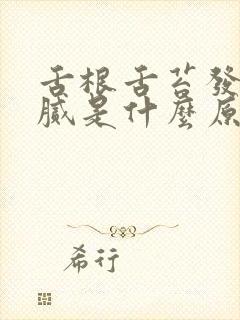 舌根舌苔發
膩是什麼原
希行